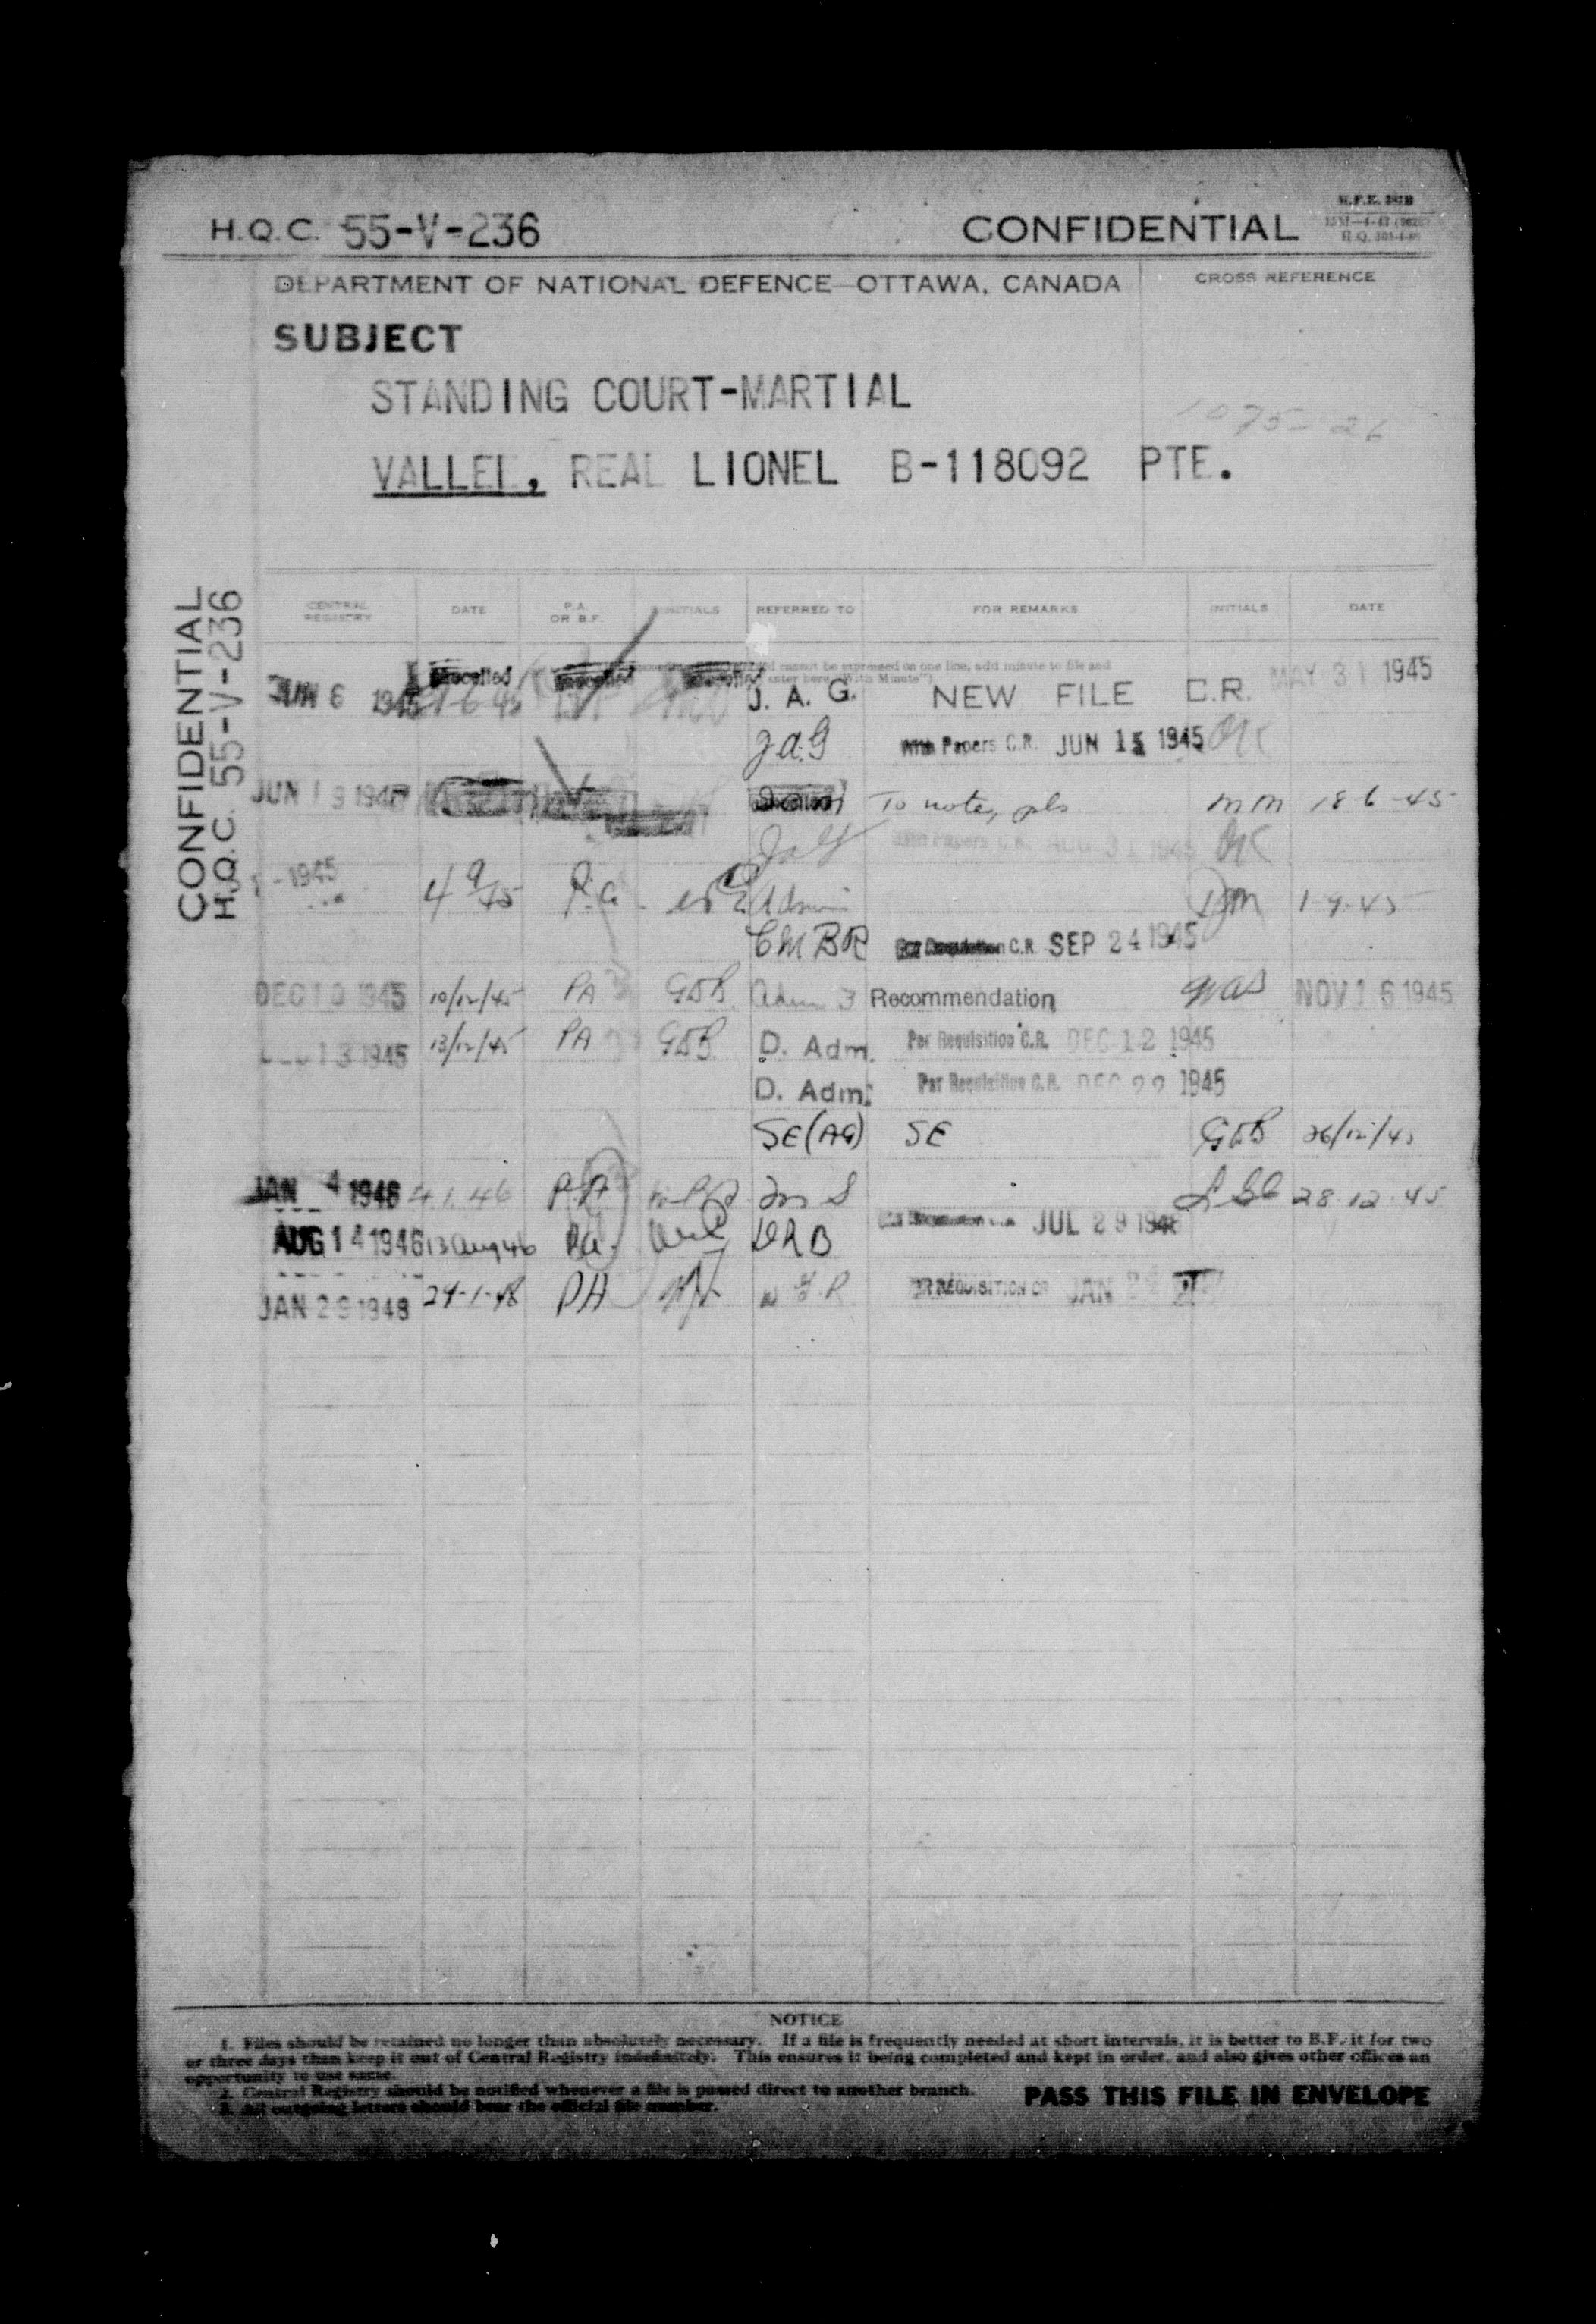 H.Q.C. 55-V-236 CONFIDENTIAL
DEPARTMENT OF NATIONAL DEFENCE—OTTAWA, CANADA CROSS REFERENCE
SUBJECT
STANDING COURT-MARTIAL
1075-26
VALLEE, REAL LIONEL B-118092 PTE.
CONFIDENTIAL
H.Q.C. 55-V-236
CENTRAL REGISTRY DATE P.A. OR B.F. INITIALS REFERRED TO FOR REMARKS INITIALS DATE
cannot be expressed on one line, add minute to file and
enter here "With Minute")
JUN 6 1945 J. A. G. NEW FILE C.R. MAY 31 1945
JAG With Papers C.R. JUN 15 1945
JUN 19 1945 To note, pls MM 18-6-45
JAG With Papers C.R. AUG 31 1945
1945 4/9/45 P.A. Admin 1-9-45
CMBR C.R. SEP 24 1945
DEC 10 1945 10/12/45 PA GDB Adm 3 Recommendation NOV 16 1945
DEC 13 1945 13/12/45 PA GDB D. Adm. Per Requisition C.R. DEC 12 1945
D. Adm. Per Requisition C.R. DEC 1945
SE(AG) SE GDB 26/12/45
JAN 4 1946 4.1.46 P.A. 28.12.45
AUG 14 1946 13 Aug 46 P.A. DRB JUL 29 1946
JAN 29 1948 29-1-48 PA PER REQUISITION CR JAN
NOTICE
1. Files should be retained no longer than absolutely necessary. If a file is frequently needed at short intervals, it is better to B.F. it for two
or three days than keep it out of Central Registry indefinitely. This ensures it being completed and kept in order, and also gives other offices an
opportunity to use same.
2. Central Registry should be notified whenever a file is passed direct to another branch.
3. All outgoing letters should bear the official file number.
PASS THIS FILE IN ENVELOPE